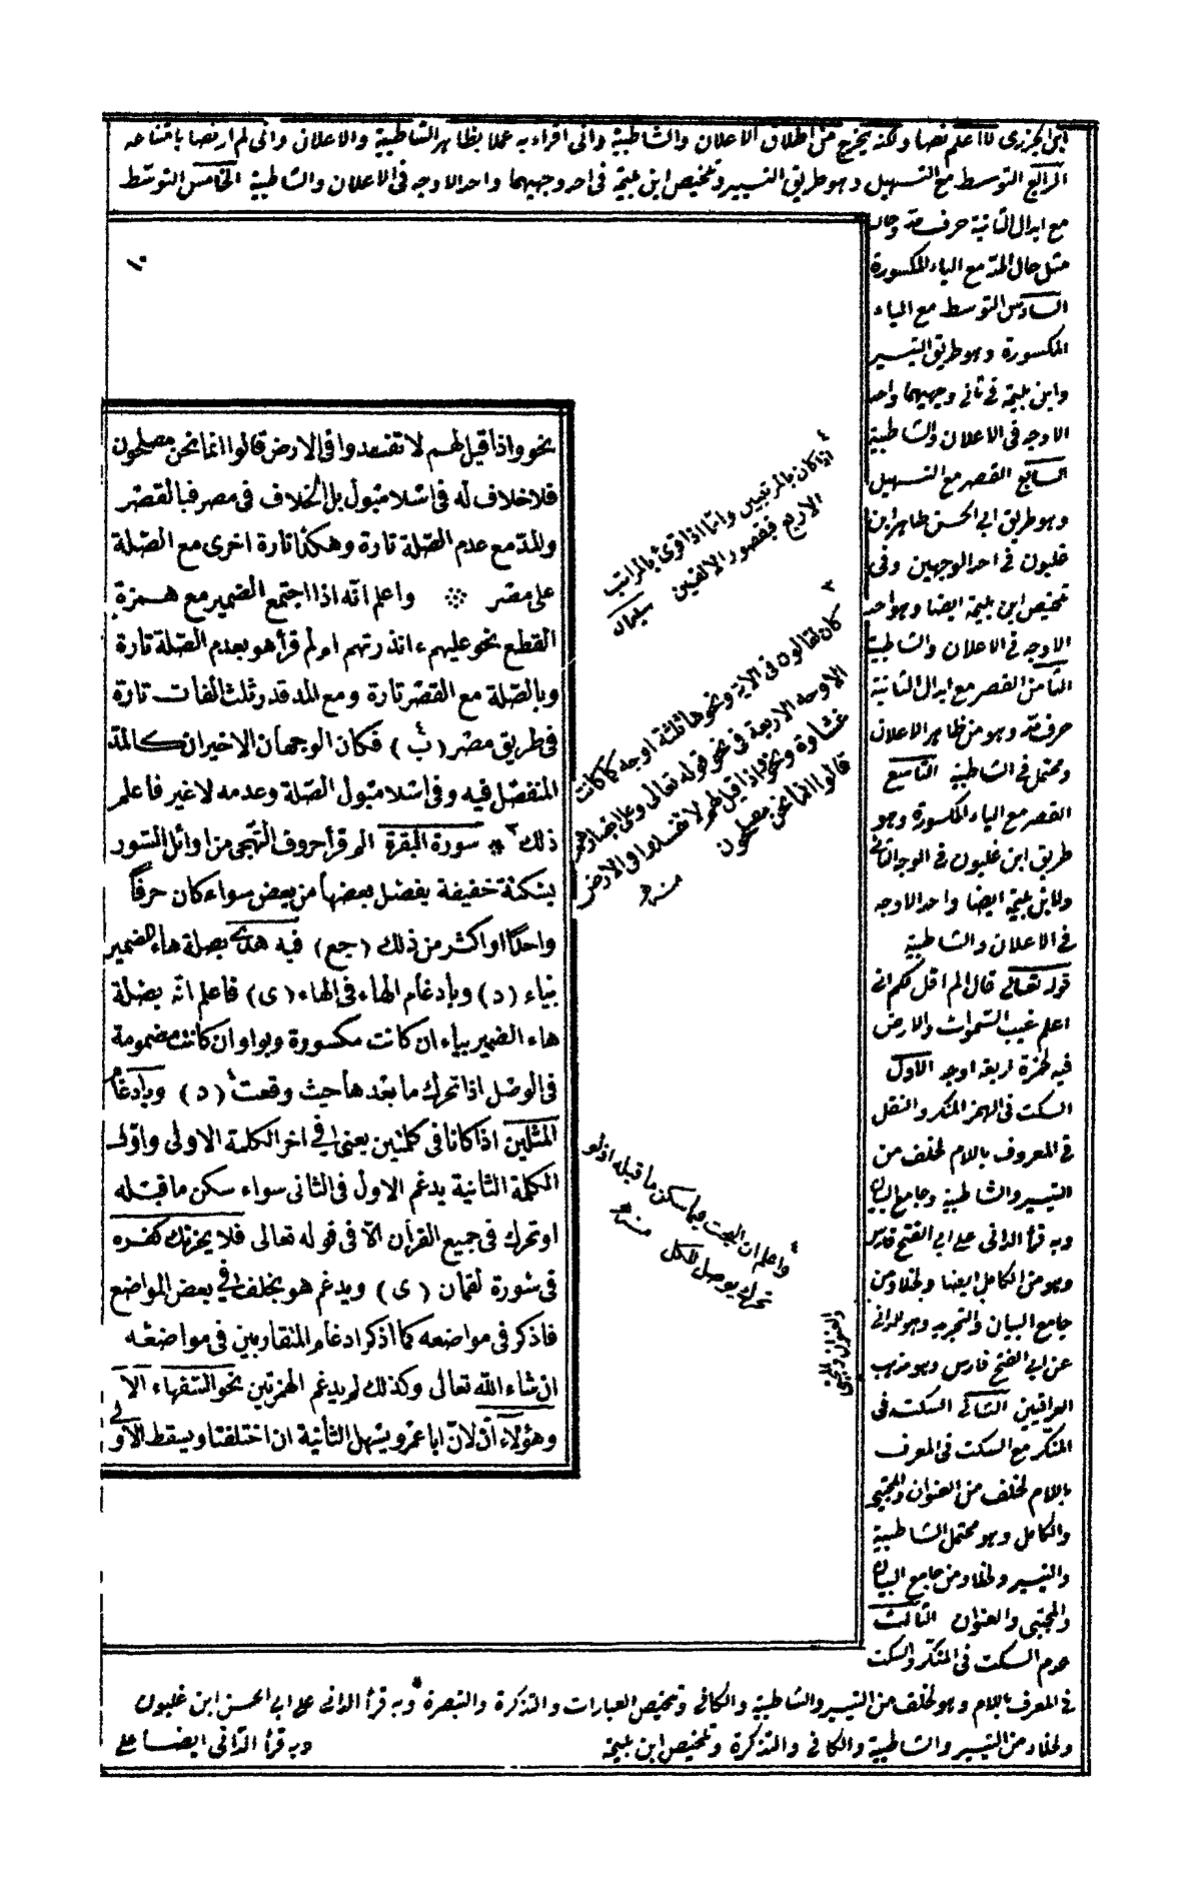 ابن الجزرى لا اعلم نصها ولكنه يخرج من اطلاق الاعلان والشاطبية وانى اقراء به عملا بظاهر الشاطبية والاعلان وانى لم ار نصا بامتناعه
الرابع التوسط مع التسهيل وهو طريق التيسير وتلخيص ابن بليمة فى احد وجهيهما واحد الاوجه فى الاعلان والشاطبية الخامس التوسط
مع ابدال الثانية حرف مد وحاله
مثل حال المد مع الياء المكسورة
السادس التوسط مع الياء
المكسورة وهو طريق التيسير
وابن بليمة فى ثانى وجهيهما واحد
الاوجه فى الاعلان والشاطبية
السابع القصر مع التسهيل
وهو طريق ابى الحسن طاهر ابن
غلبون فى احد الوجهين وفى
تلخيص ابن بليمة ايضا وهو احد
الاوجه فى الاعلان والشاطبية
الثامن القصر مع ابدال الثانية
حرف مد وهو من ظاهر الاعلان
ومحتمل فى الشاطبية التاسع
القصر مع الياء المكسورة وهو
طريق ابن غلبون فى الوجه الثانى
ولابن بليمة ايضا واحد الاوجه
فى الاعلان والشاطبية
قوله تعالى قال الم اقل لكم انى
اعلم غيب السموات والارض
فيه لحمزة اربعة اوجه الاول
السكت فى الهمز المنكر والنقل
فى المعروف باللام لخلف من
التيسير والشاطبية وجامع البيان
وبه قرأ الدانى على ابى الفتح فارس
وهو من الكامل ايضا ولخلاد من
جامع البيان والتجريد وهو للدانى
عن ابى الفتح فارس وهو مذهب
العراقيين الثانى السكت فى
المنكر مع السكت فى المعرف
باللام لخلف من العنوان والمجتبى
والكامل وهو محتمل الشاطبية
والتيسير ولخلاد من جامع البيان
والمجتبى والعنوان الثالث
عدم السكت فى المنكر والسكت
فى المعرف باللام وهو لخلف من التيسير والشاطبية والكافى وتلخيص العبارات والتذكرة والتبصرة * وبه قرأ الدانى على ابى الحسن ابن غلبون
ولخلاد من التيسير والشاطبية والكافى والتذكرة وتلخيص ابن بليمة وبه قرأ الدانى ايضا على
١٠
نحو واذا قيل لهم لا تفسدوا فى الارض قالوا انما نحن مصلحون
فلا خلاف له فى اسلامبول بل الخلاف فى مصر فبالقصر
والمد مع عدم الصلة تارة وهكذا تارة اخرى مع الصلة
على مصر ※ واعلم انه اذا اجتمع الضمير مع همزة
القطع نحو عليهم ءانذرتهم ام لم قرأ هو بعدم الصلة تارة
وبالصلة مع القصر تارة ومع المد قدر ثلث الفات تارة
فى طريق مصر (ب) فكان الوجهان الاخيران كالمد
المنفصل فيه وفى اسلامبول الصلة وعدمه لا غير فاعلم
ذلك ٣ * سورة البقرة الم قرأ حروف التهجى من اوائل السور
بسكتة خفيفة يفصل بعضها من بعض سواء كان حرفا
واحدا او اكثر من ذلك (جع) فيه هدى بصلة هاء الضمير
بياء (د) وبادغام الهاء فى الهاء (ى) فاعلم انه بصلة
هاء الضمير بياء ان كانت مكسورة وبواو ان كانت مضمومة
فى الوصل اذا تحرك ما بعدها حيث وقعت (د) وبادغام
المثلين اذا كانا فى كلمتين يعنى فى اخر الكلمة الاولى واول
الكلمة الثانية يدغم الاول فى الثانى سواء سكن ما قبله
او تحرك فى جميع القرآن الا فى قوله تعالى فلا يحزنك كفره
فى سورة لقمان (ى) ويدغم هو بخلف فى بعض المواضع
فاذكر فى مواضعه كما اذكر ادغام المتقاربين فى مواضعه
ان شاء الله تعالى وكذلك لم يدغم الهمزتين نحو السفهاء الا
وهؤلاء ان لان ابا عمرو يسهل الثانية ان اختلفتا ويسقط الاولى
٤
اذا كان بالمرتبتين واما اذا قرئ بالمراتب
الاربع فقصور الالفين سليمان
٣
كان لقالون فى الاية ونحوها ثلثة اوجه كما كانت
الاوجه الاربعة فى نحو قوله تعالى وعلى ابصارهم
غشاوة ونحو واذا قيل لهم لا تفسدوا فى الارض
قالوا انما نحن مصلحون
منه
٤
واعلم ان البحث فيما سكن ما قبله اذ لو
تحرك يوصل للكل منه
والعنوان والمجتبى